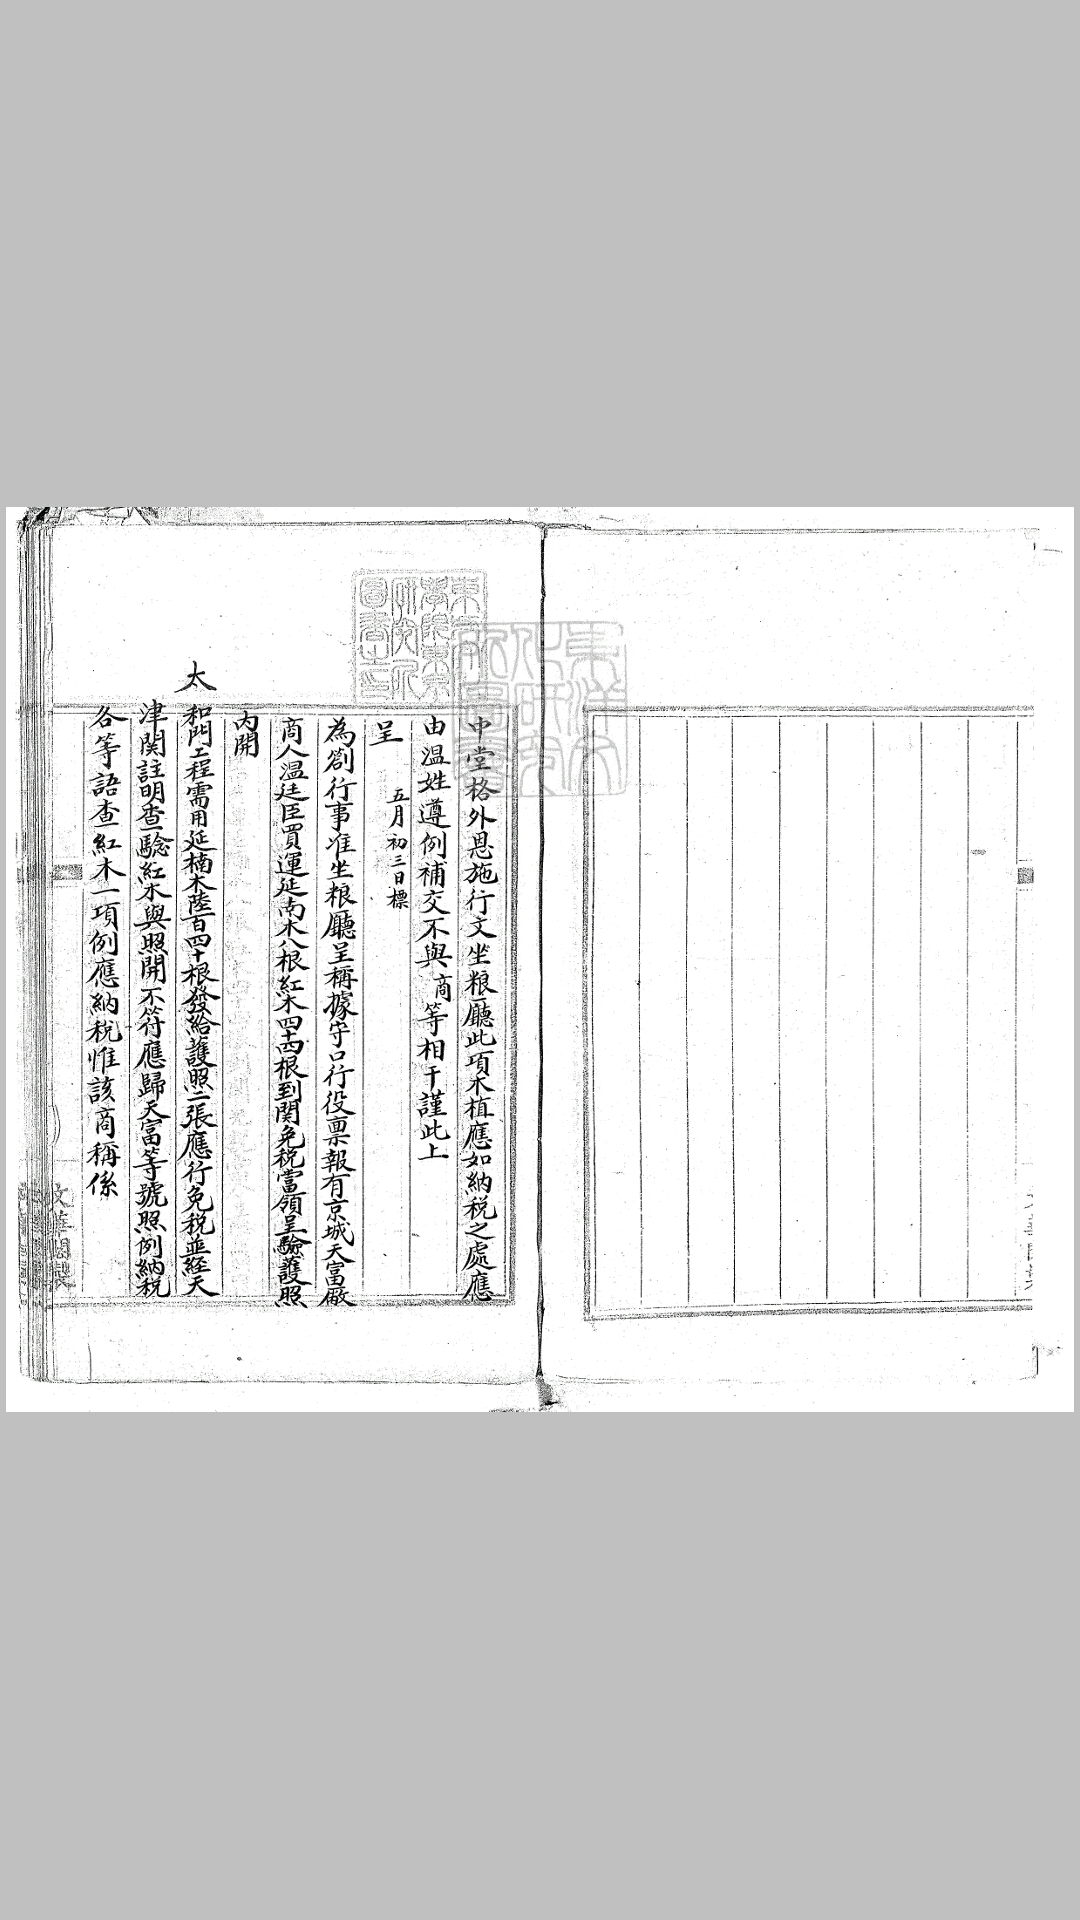 中堂格外恩施行文坐粮廳此項木植應如納税之處應
由温姓遵例補交不與商等相干謹此上
呈
五月初三日標
為劄行事准坐粮廳呈稱據守口行役禀報有京城天富厰
商人温廷臣買運延南木八根紅木四十四根到関免税當領呈驗護照
内開
太和門工程需用延楠木陸百四十根發給護照二張應行免税並経天
津関註明查驗紅木與照開不符應歸天富等號照例納税
各等語查紅木一項例應納税惟該商稱係
文華閣製